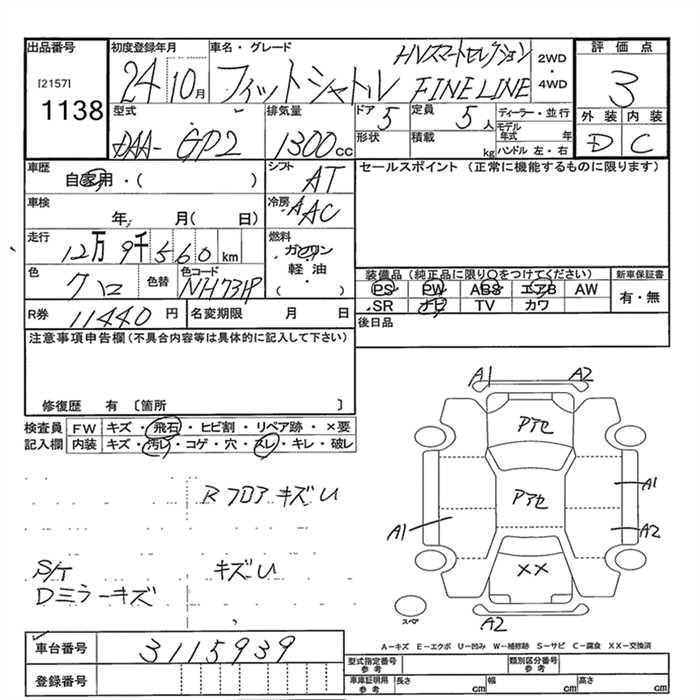 出品番号
[2157]
1138
初度登録年月
24 10月
車名・グレード
HVスマートセレクション
フィットシャトル FINE LINE
2WD
・
4WD
評価点
3
外装 内装
D C
型式
DAA- GP2
排気量
1300cc
ドア
5
定員
5人
形状
積載
kg
ディーラー・並行
モデル年式 年
ハンドル 左・右
車歴
自家用・( )
シフト
AT
セールスポイント (正常に機能するものに限ります)
車検
年 月( 日)
冷房
AAC
走行
12万9千560km
燃料
ガソリン
軽油
( )
色
クロ
色替
色コード
NH731P
装備品(純正品に限り○をつけてください)
PS PW ABS エアB AW
SR ナビ TV カワ
新車保証書
有・無
R券
11440円
名変期限 月 日
後日品
注意事項申告欄(不具合内容等は具体的に記入して下さい)
修復歴 有〔箇所 〕
検査員記入欄
FW キズ・飛石・ヒビ割・リペア跡・×要
内装 キズ・汚レ・コゲ・穴・スレ・キレ・破レ
RフロアキズU
S/T キズU
Dミラーキズ
A1 A2
Pアセ
Pアセ
A1
A1
A2
××
スペア
A2
A-キズ E-エクボ U-凹み W-補修跡 S-サビ C-腐食 XX-交換済
車台番号
3115939
登録番号
型式指定番号 参考
類別区分番号 参考
車庫証明用 参考
長さ cm
幅 cm
高さ cm